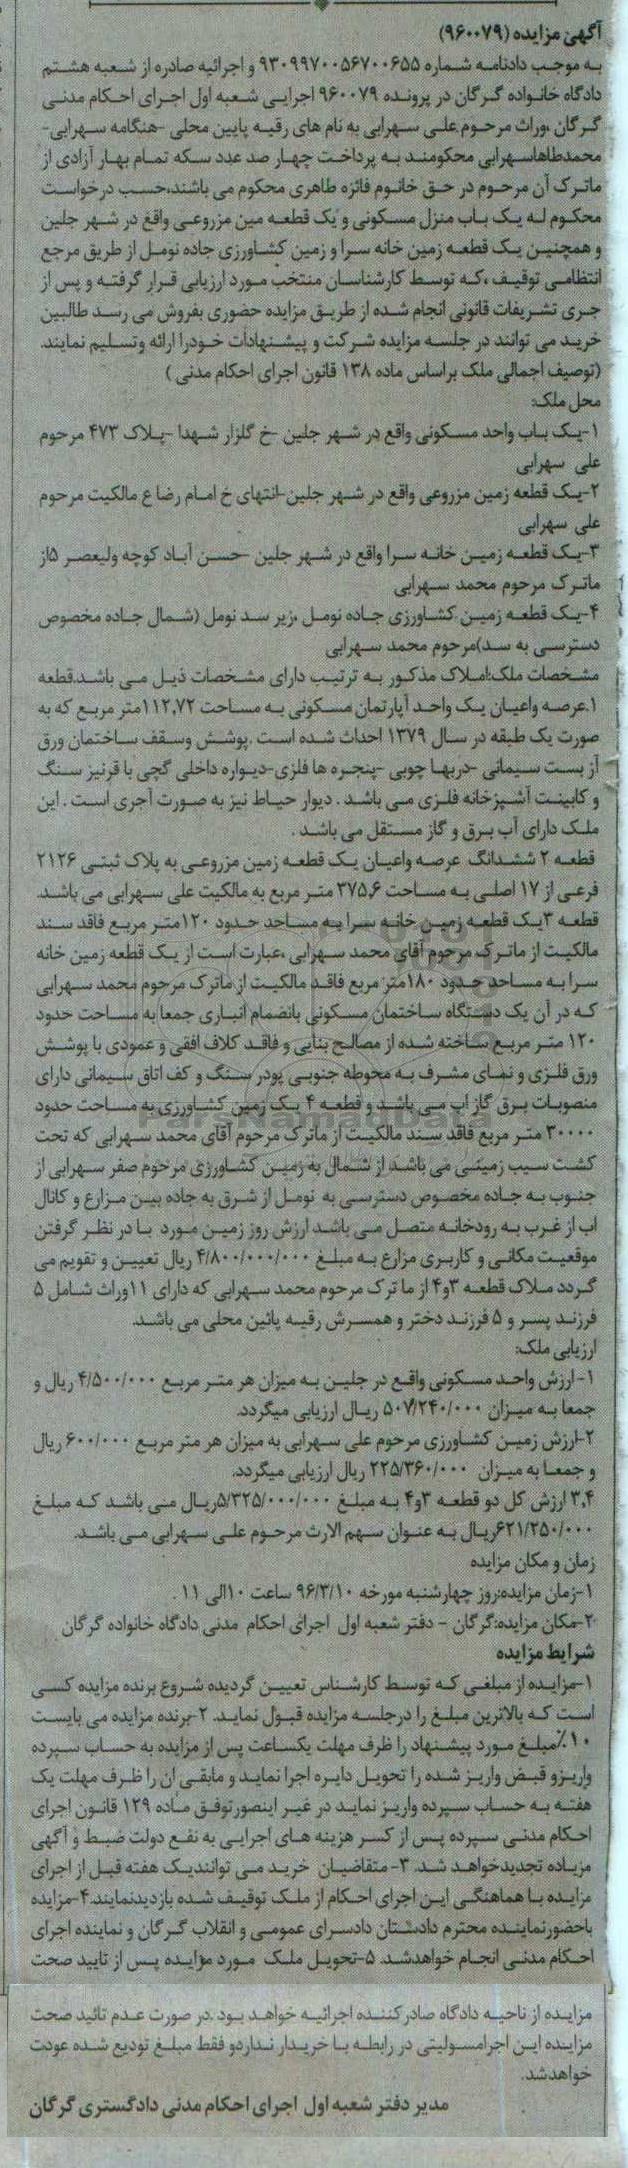 آگهی مزایده (۹۶۰۰۷۹)
به موجب دادنامه شماره ۹۳۰۹۹۷۰۰۵۶۷۰۰۶۵۵ و اجرائیه صادره از شعبه هشتم
دادگاه خانواده گرگان در پرونده ۹۶۰۰۷۹ اجرایی شعبه اول اجرای احکام مدنی
گرگان ،وراث مرحوم علی سهرابی به نام های رقیه پایین محلی -هنگامه سهرابی-
محمدطاهاسهرابی محکومند به پرداخت چهار صد عدد سکه تمام بهار آزادی از
ماترک آن مرحوم در حق خانوم فائزه طاهری محکوم می باشند،حسب درخواست
محکوم له یک باب منزل مسکونی و یک قطعه مین مزروعی واقع در شهر جلین
و همچنین یک قطعه زمین خانه سرا و زمین کشاورزی جاده نومل از طریق مرجع
انتظامی توقیف ،که توسط کارشناسان منتخب مورد ارزیابی قرار گرفته و پس از
جری تشریفات قانونی انجام شده از طریق مزایده حضوری بفروش می رسد طالبین
خرید می توانند در جلسه مزایده شرکت و پیشنهادات خودرا ارائه وتسلیم نمایند.
(توصیف اجمالی ملک براساس ماده ۱۳۸ قانون اجرای احکام مدنی )
محل ملک:
۱-یک باب واحد مسکونی واقع در شهر جلین -خ گلزار شهدا -پلاک ۴۷۳ مرحوم
علی سهرابی
۲-یک قطعه زمین مزروعی واقع در شهر جلین-انتهای خ امام رضا ع مالکیت مرحوم
علی سهرابی
۳-یک قطعه زمین خانه سرا واقع در شهر جلین -حسن آباد کوچه ولیعصر ۵از
ماترک مرحوم محمد سهرابی
۴-یک قطعه زمین کشاورزی جاده نومل ،زیر سد نومل (شمال جاده مخصوص
دسترسی به سد)مرحوم محمد سهرابی
مشخصات ملک:املاک مذکور به ترتیب دارای مشخصات ذیل می باشد.قطعه
۱.عرصه واعیان یک واحد آپارتمان مسکونی به مساحت ۱۱۲,۷۲متر مربع که به
صورت یک طبقه در سال ۱۳۷۹ احداث شده است .پوشش وسقف ساختمان ورق
آز بست سیمانی -دربها چوبی -پنجره ها فلزی-دیواره داخلی گچی با قرنیز سنگ
و کابینت آشپزخانه فلزی می باشد . دیوار حیاط نیز به صورت آجری است . این
ملک دارای آب برق و گاز مستقل می باشد .
قطعه ۲ ششدانگ عرصه واعیان یک قطعه زمین مزروعی به پلاک ثبتی ۲۱۲۶
فرعی از ۱۷ اصلی به مساحت ۳۷۵,۶ متر مربع به مالکیت علی سهرابی می باشد.
قطعه ۳یک قطعه زمین خانه سرا به مساحد حدود ۱۲۰متر مربع فاقد سند
مالکیت از ماترک مرحوم آقای محمد سهرابی ،عبارت است از یک قطعه زمین خانه
سرا به مساحد حدود ۱۸۰متر مربع فاقد مالکیت از ماترک مرحوم محمد سهرابی
که در آن یک دستگاه ساختمان مسکونی بانضمام انباری جمعا به مساحت حدود
۱۲۰ متر مربع ساخته شده از مصالح بنایی و فاقد کلاف افقی و عمودی با پوشش
ورق فلزی و نمای مشرف به محوطه جنوبی پودر سنگ و کف اتاق سیمانی دارای
منصوبات برق گاز اب می باشد و قطعه ۴ یک زمین کشاورزی به مساحت حدود
۳۰۰۰۰ متر مربع فاقد سند مالکیت از ماترک مرحوم آقای محمد سهرابی که تحت
کشت سیب زمینی می باشد از شمال به زمین کشاورزی مرحوم صفر سهرابی از
جنوب به جاده مخصوص دسترسی به نومل از شرق به جاده بین مزارع و کانال
اب از غرب به رودخانه متصل می باشد ارزش روز زمین مورد با در نظر گرفتن
موقعیت مکانی و کاربری مزارع به مبلغ ۴/۸۰۰/۰۰۰/۰۰۰ ریال تعیین و تقویم می
گردد ملاک قطعه ۳و۴ از ما ترک مرحوم محمد سهرابی که دارای ۱۱وراث شامل ۵
فرزند پسر و ۵ فرزند دختر و همسرش رقیه پائین محلی می باشد.
ارزیابی ملک:
۱- ارزش واحد مسکونی واقع در جلین به میزان هر متر مربع ۴/۵۰۰/۰۰۰ ریال و
جمعا به میزان ۵۰۷/۲۴۰/۰۰۰ ریال ارزیابی میگردد.
۲-ارزش زمین کشاورزی مرحوم علی سهرابی به میزان هر متر مربع ۶۰۰/۰۰۰ ریال
و جمعا به میزان ۲۲۵/۳۶۰/۰۰۰ ریال ارزیابی میگردد.
۳,۴ ارزش کل دو قطعه ۳و۴ به مبلغ ۵/۳۲۵/۰۰۰/۰۰۰ریال می باشد که مبلغ
۶۲۱/۲۵۰/۰۰۰ریال به عنوان سهم الارث مرحوم علی سهرابی می باشد.
زمان و مکان مزایده
۱-زمان مزایده:روز چهارشنبه مورخه ۹۶/۳/۱۰ ساعت ۱۰الی ۱۱ .
۲-مکان مزایده:گرگان - دفتر شعبه اول اجرای احکام مدنی دادگاه خانواده گرگان
شرایط مزایده
۱-مزایده از مبلغی که توسط کارشناس تعیین گردیده شروع برنده مزایده کسی
است که بالاترین مبلغ را درجلسه مزایده قبول نماید. ۲-برنده مزایده می بایست
۱۰٪مبلغ مورد پیشنهاد را ظرف مهلت یکساعت پس از مزایده به حساب سپرده
واریزو قبض واریز شده را تحویل دایره اجرا نماید و مابقی ان را ظرف مهلت یک
هفته به حساب سپرده واریز نماید در غیر اینصورتوفق ماده ۱۲۹ قانون اجرای
احکام مدنی سپرده پس از کسر هزینه های اجرایی به نفع دولت ضبط و آگهی
مزیاده تجدیدخواهد شد. ۳- متقاضیان خرید می توانندیک هفته قبل از اجرای
مزایده با هماهنگی این اجرای احکام از ملک توقیف شده بازدیدنمایند.۴-مزایده
باحضورنماینده محترم دادستان دادسرای عمومی و انقلاب گرگان و نماینده اجرای
احکام مدنی انجام خواهدشد. ۵-تحویل ملک مورد مزایده پس از تایید صحت
مزایده از ناحیه دادگاه صادرکننده اجرائیه خواهد بود .در صورت عدم تائید صحت
مزاینده این اجرامسولیتی در رابطه با خریدار نداردو فقط مبلغ تودیع شده عودت
خواهدشد.
مدیر دفتر شعبه اول اجرای احکام مدنی دادگستری گرگان